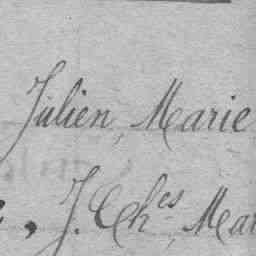 Julien, Marie
, J. Ches, Mar